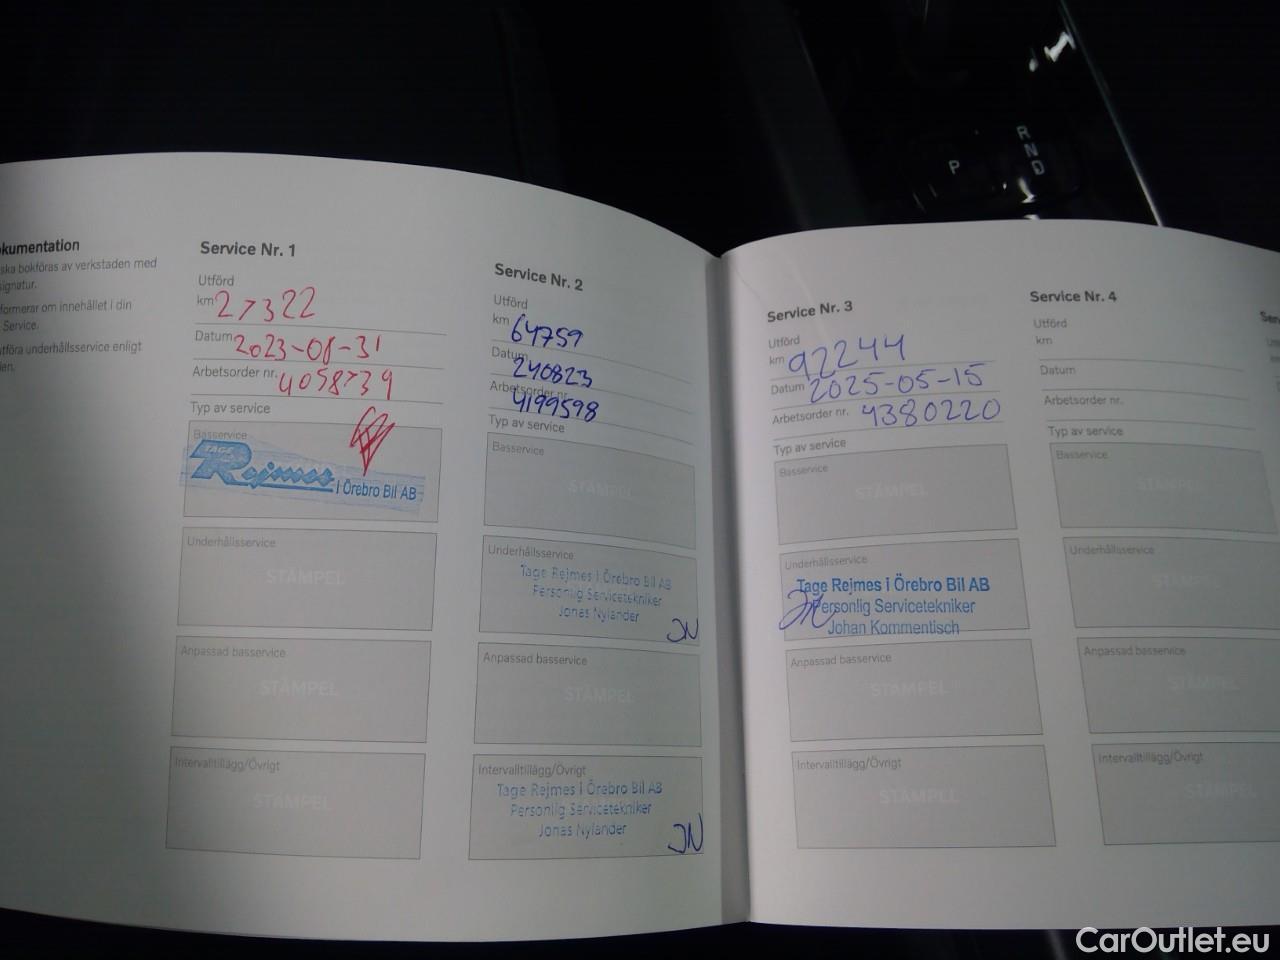 okumentation
ska bokföras av verkstaden med
signatur.
formerar om innehållet i din
Service.
tföra underhållsservice enligt
den.
Service Nr. 1
Utförd
km 27322
Datum 2023-08-31
Arbetsorder nr. 4058739
Typ av service
Basservice
TAGE
Rejmes i Örebro Bil AB
Underhållsservice
STÄMPEL
Anpassad basservice
STÄMPEL
Intervalltillägg/Övrigt
STÄMPEL
Service Nr. 2
Utförd
km 64759
Datum 240823
Arbetsorder nr. 4199598
Typ av service
Basservice
STÄMPEL
Underhållsservice
Tage Rejmes i Örebro Bil AB
Personlig Servicetekniker
Jonas Nylander
JN
Anpassad basservice
STÄMPEL
Intervalltillägg/Övrigt
Tage Rejmes i Örebro Bil AB
Personlig Servicetekniker
Jonas Nylander
JN
Service Nr. 3
Utförd
km 92244
Datum 2025-05-15
Arbetsorder nr. 4380220
Typ av service
Basservice
STÄMPEL
Underhållsservice
Tage Rejmes i Örebro Bil AB
Personlig Servicetekniker
Johan Kommentisch
Anpassad basservice
STÄMPEL
Intervalltillägg/Övrigt
STÄMPEL
Service Nr. 4
Utförd
km
Datum
Arbetsorder nr.
Typ av service
Basservice
STÄMPEL
Underhållsservice
STÄMPEL
Anpassad basservice
STÄMPEL
Intervalltillägg/Övrigt
STÄMPEL
P
R
N
D
CarOutlet.eu